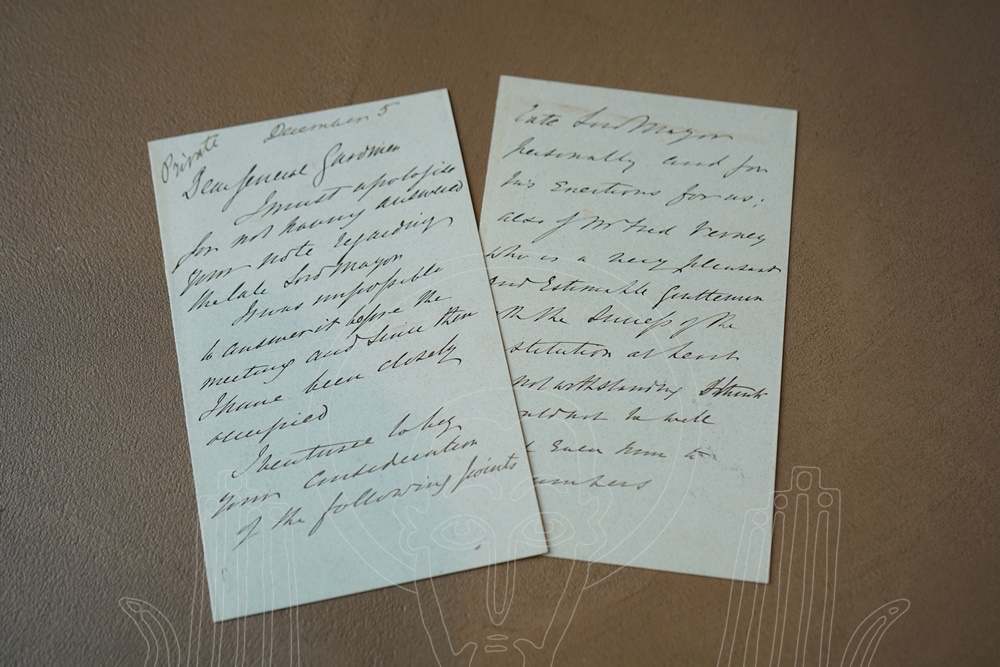 Private
December 5
Dear General Gardiner
I must apologise
for not having answered
your note regarding
the late Lord Mayor
It was impossible
to answer it before the
meeting and since then
I have been closely
occupied
I venture to beg
your consideration
of the following points
late Lord Mayor
personally and for
his exertions for us;
also of Mr Fred Verney
who is a very pleasant
and Estimable Gentleman
the success of the
stitution at heart
notwithstanding I think
not be well
Even him to
umbers